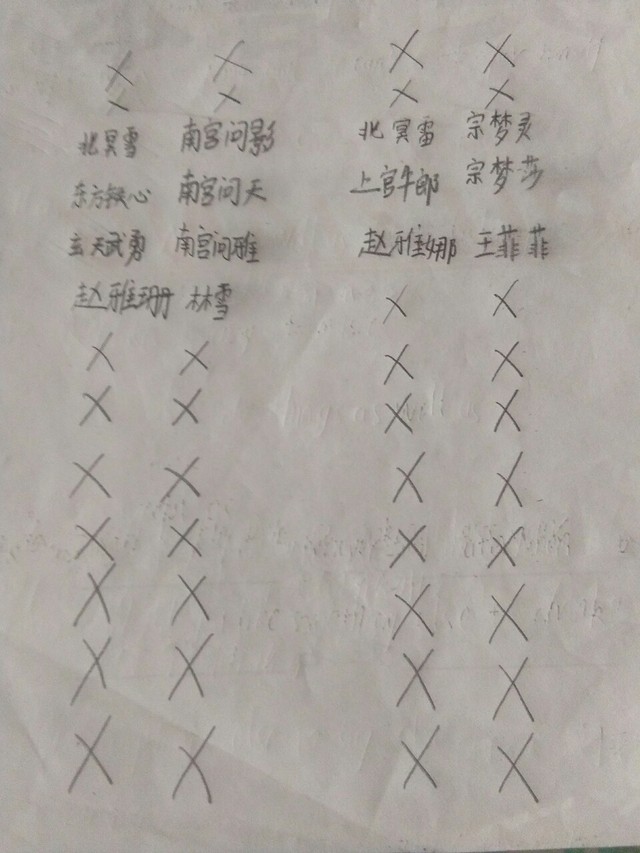 北冥雪 南宫问影 北冥雷 宗梦灵
东方铁心 南宫问天 上官牛郎 宗梦莎
玄天武勇 南宫问雅 赵雅娜 王菲菲
赵雅珊 林雪